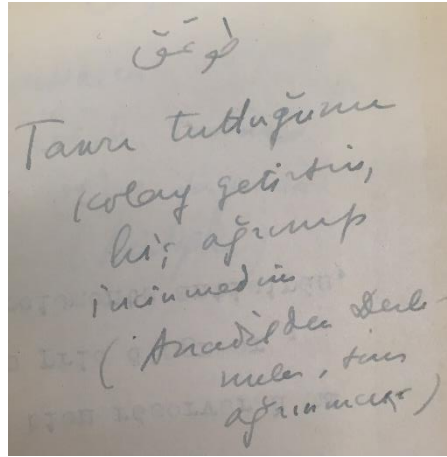 Tanrı tuttuğunu
kolay getirsin,
hiç ağrınıp
incinmedin
(Anadilden Derle
meler,
ağrınmak)